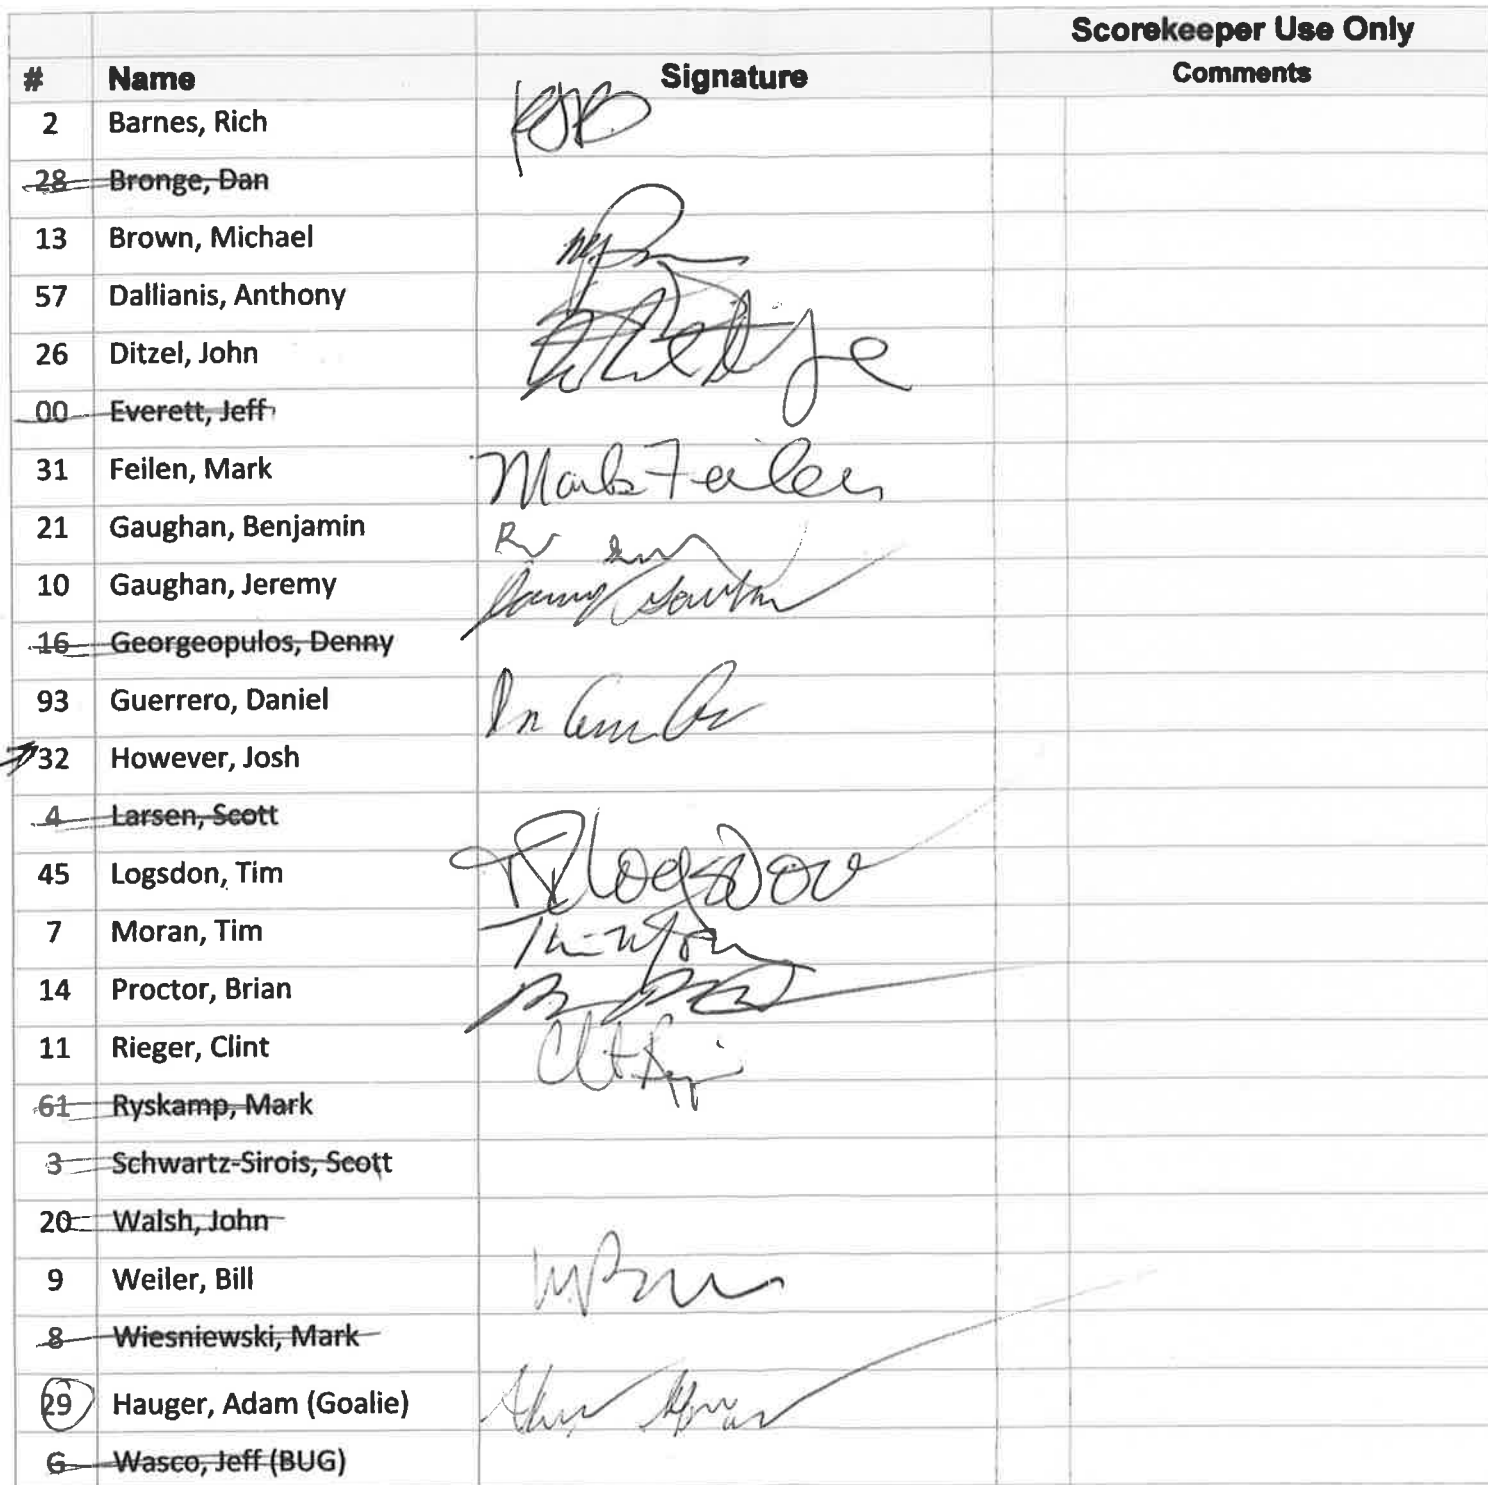 Scorekeeper Use Only
# Name Signature Comments
2 Barnes, Rich
28 Bronge, Dan
13 Brown, Michael
57 Dallianis, Anthony
26 Ditzel, John
00 Everett, Jeff
31 Feilen, Mark Mark Feilen
21 Gaughan, Benjamin
10 Gaughan, Jeremy
16 Georgeopulos, Denny
93 Guerrero, Daniel
32 However, Josh
4 Larsen, Scott
45 Logsdon, Tim Logsdon
7 Moran, Tim
14 Proctor, Brian
11 Rieger, Clint
61 Ryskamp, Mark
3 Schwartz-Sirois, Scott
20 Walsh, John
9 Weiler, Bill
8 Wiesniewski, Mark
29 Hauger, Adam (Goalie)
G Wasco, Jeff (BUG)